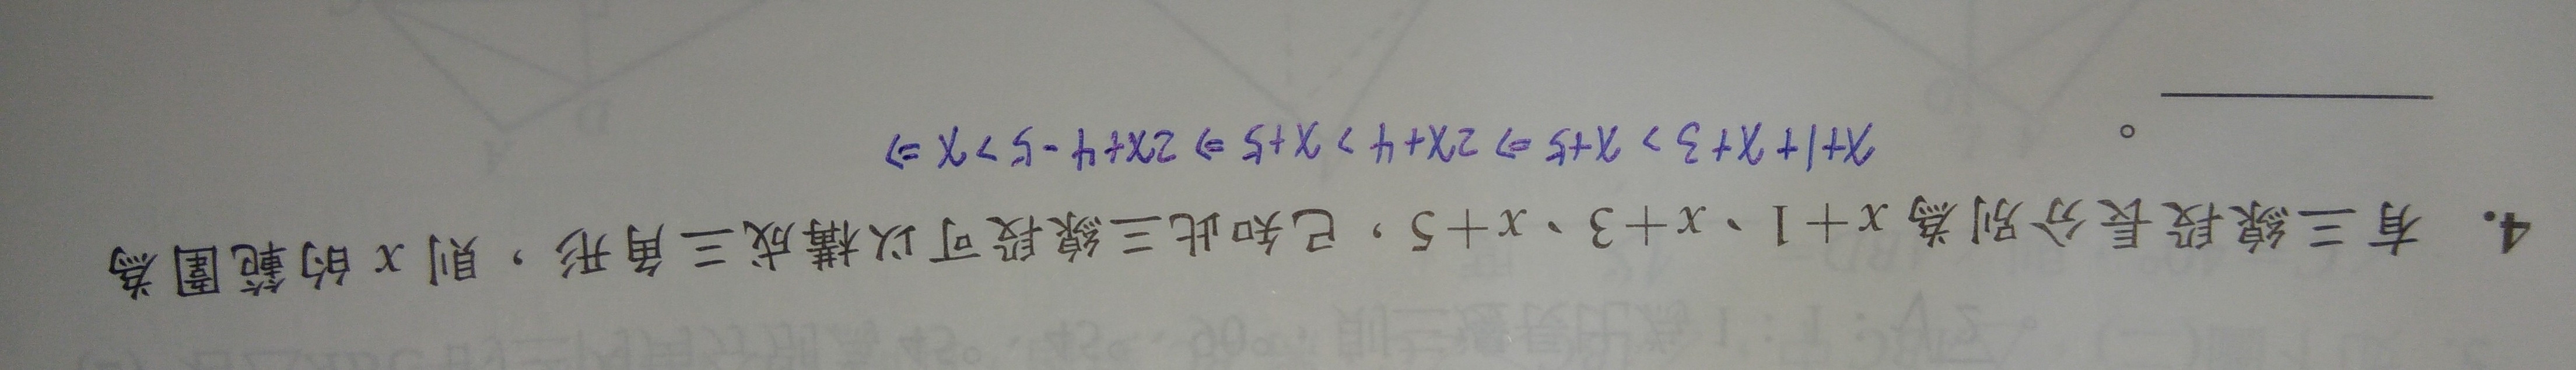 4. 有三線段長分別為 x+1、x+3、x+5，已知此三線段可以構成三角形，則 x 的範圍為
x+1+x+3 > x+5 ⇒ 2x+4 > x+5 ⇒ 2x+4-5 > x ⇒
。